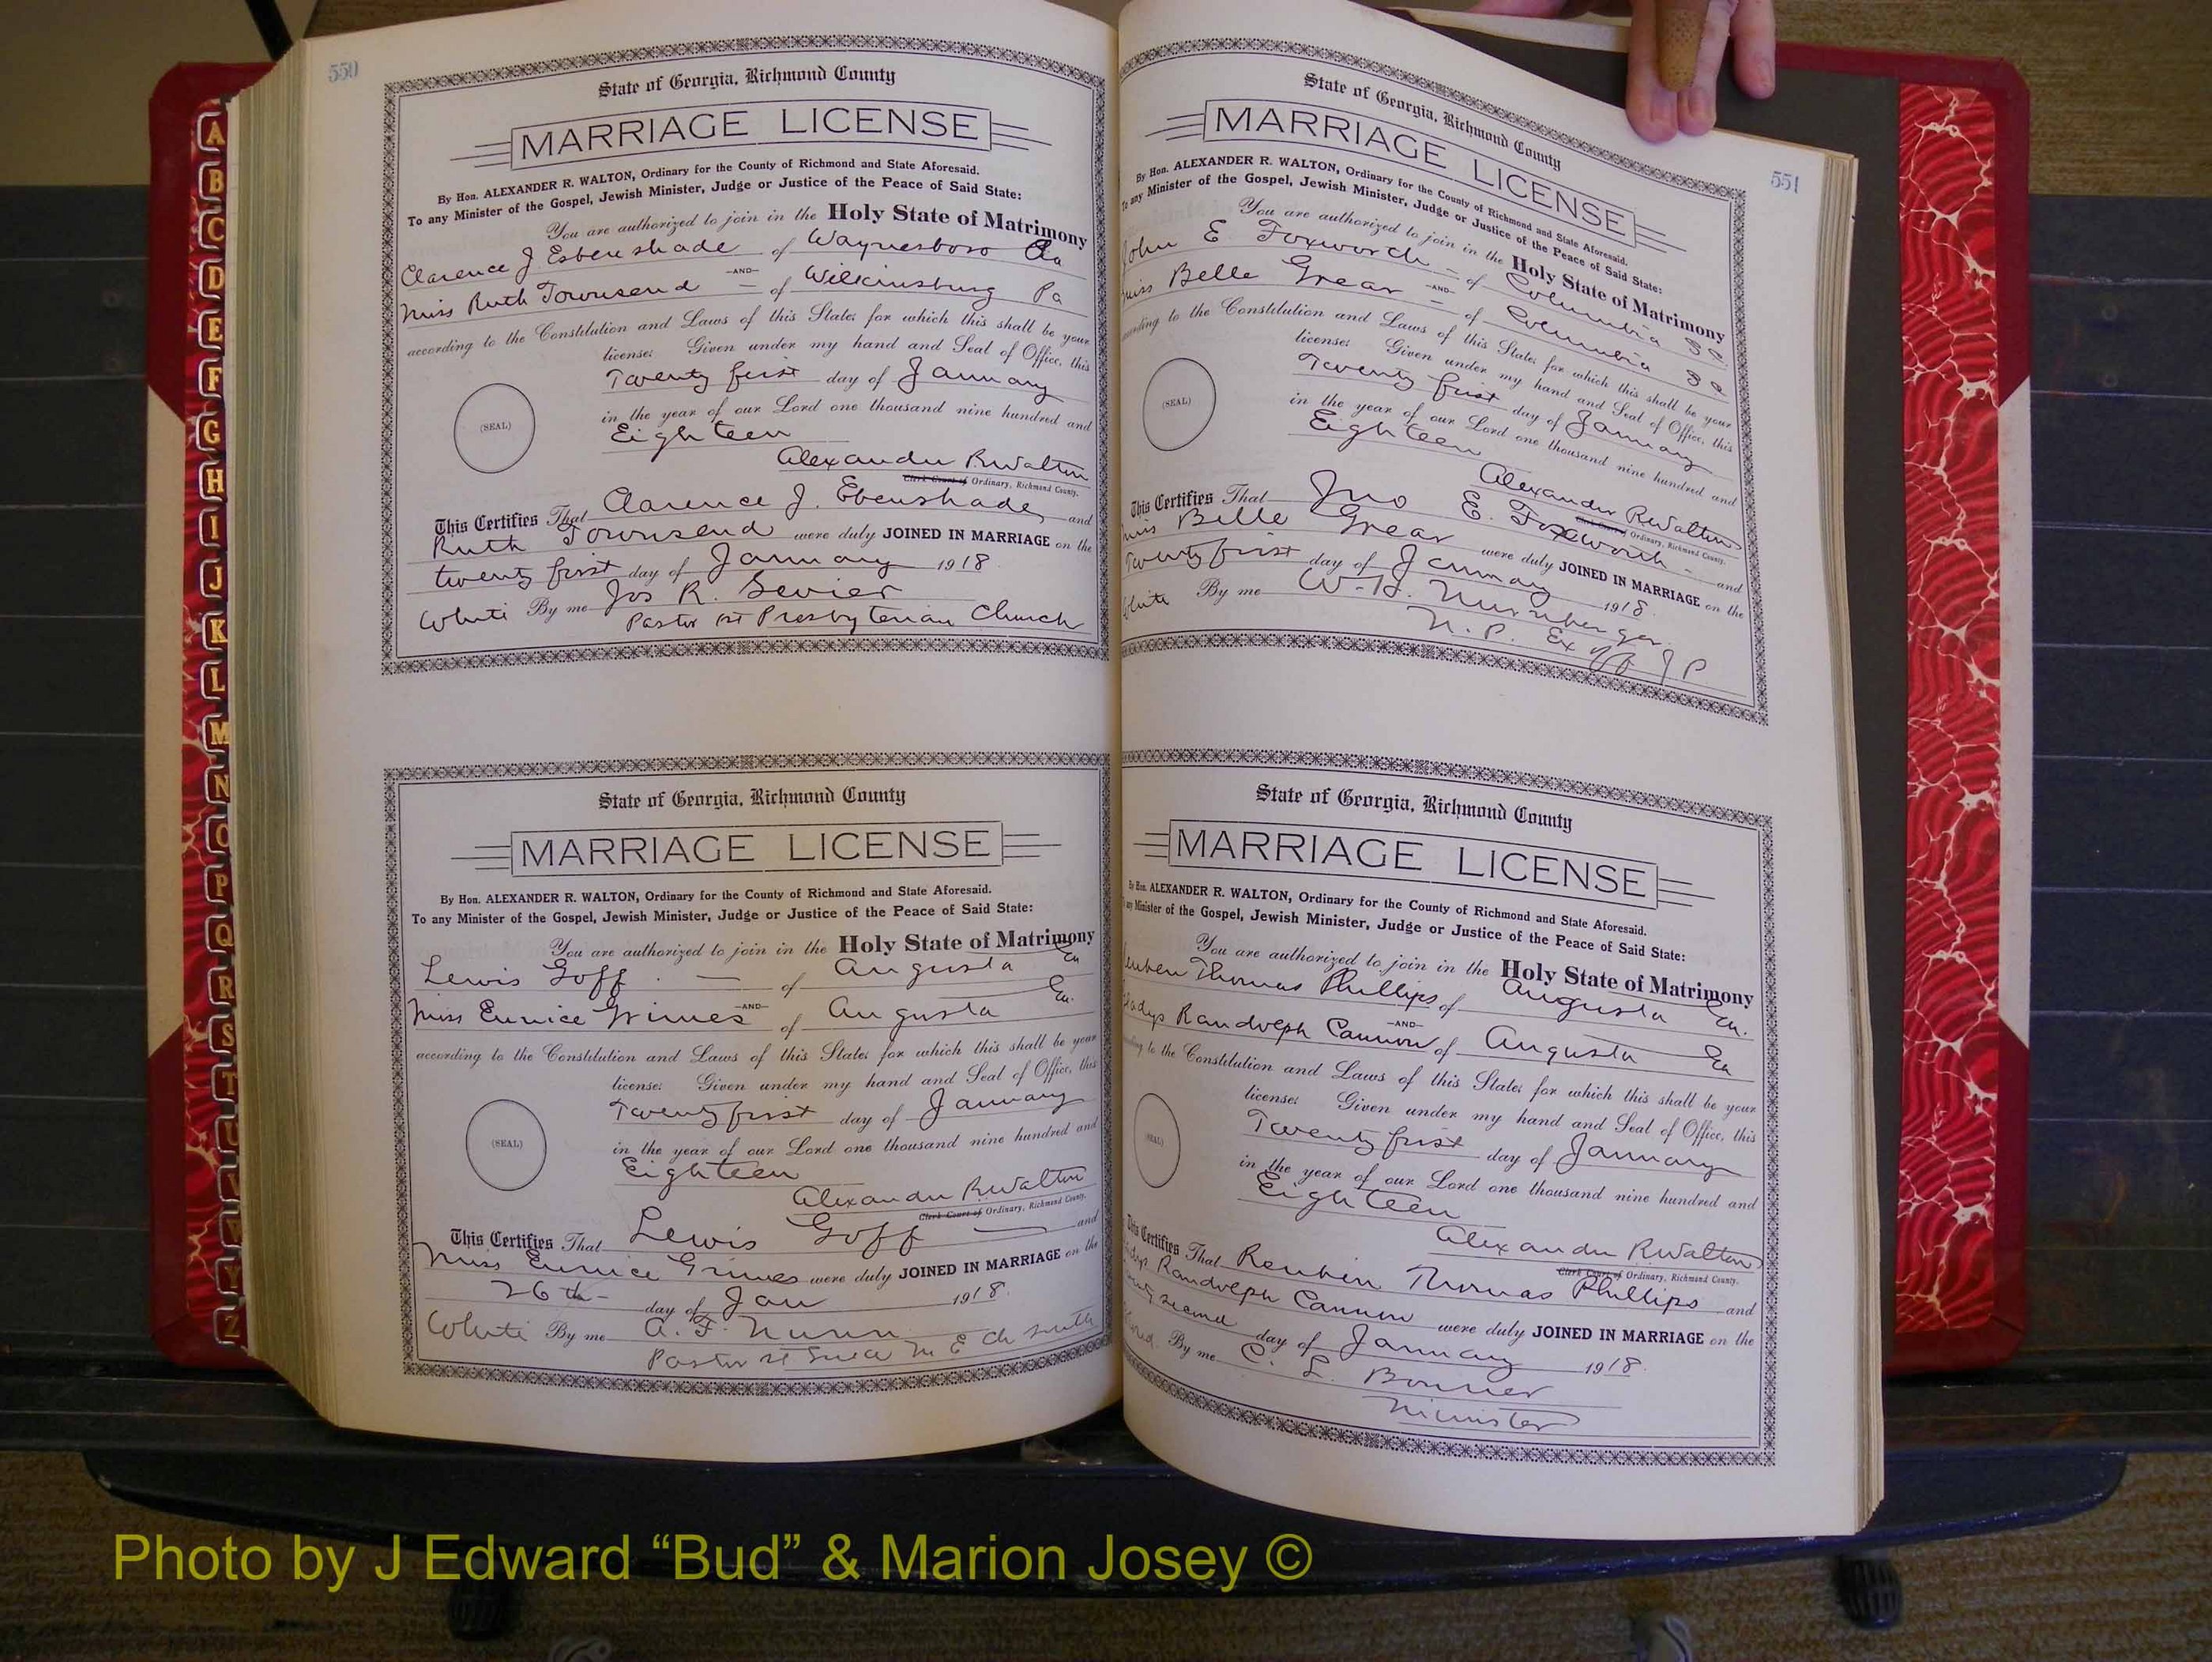 A
B
C
D
E
F
G
H
I
J
K
L
M
N
O
P
Q
R
S
T
U
V
Y
Z
550
State of Georgia, Richmond County
MARRIAGE LICENSE
By Hon. ALEXANDER R. WALTON, Ordinary for the County of Richmond and State Aforesaid.
To any Minister of the Gospel, Jewish Minister, Judge or Justice of the Peace of Said State:
You are authorized to join in the Holy State of Matrimony
Clarence J. Esbenshade of Waynesboro
—AND—
Miss Ruth Townsend — of Wilkinsburg Pa
according to the Constitution and Laws of this State; for which this shall be your
license: Given under my hand and Seal of Office, this
Twenty first day of January
in the year of our Lord one thousand nine hundred and
(SEAL)
Eighteen
Alexander R Walton
Clerk Court of Ordinary, Richmond County.
This Certifies That Clarence J. Ebenshade, and
Ruth Townsend were duly JOINED IN MARRIAGE on the
twenty first day of January 1918
White By me Jos R. Sevier
Pastor 1st Presbyterian Church
State of Georgia, Richmond County
MARRIAGE LICENSE
By Hon. ALEXANDER R. WALTON, Ordinary for the County of Richmond and State Aforesaid.
To any Minister of the Gospel, Jewish Minister, Judge or Justice of the Peace of Said State:
You are authorized to join in the Holy State of Matrimony
Lewis Goff — of Augusta Ga
—AND—
Miss Eunice Grimes of Augusta Ga.
according to the Constitution and Laws of this State; for which this shall be your
license: Given under my hand and Seal of Office, this
Twenty first day of January
in the year of our Lord one thousand nine hundred and
(SEAL)
Eighteen
Alexander R Walton
Clerk Court of Ordinary, Richmond County.
This Certifies That Lewis Goff — and
Miss Eunice Grimes were duly JOINED IN MARRIAGE on the
26th — day of Jan 1918.
White By me A. F. Nunn
Pastor M E Ch South
551
State of Georgia, Richmond County
MARRIAGE LICENSE
By Hon. ALEXANDER R. WALTON, Ordinary for the County of Richmond and State Aforesaid.
To any Minister of the Gospel, Jewish Minister, Judge or Justice of the Peace of Said State:
You are authorized to join in the Holy State of Matrimony
John E. Foxworth — of Columbia SC
—AND—
Miss Belle Grear — of Columbia SC
according to the Constitution and Laws of this State; for which this shall be your
license: Given under my hand and Seal of Office, this
Twenty first day of January
in the year of our Lord one thousand nine hundred and
(SEAL)
Eighteen
Alexander R Walton
Clerk Court of Ordinary, Richmond County.
This Certifies That Jno E. Foxworth — and
Miss Belle Grear were duly JOINED IN MARRIAGE on the
Twenty first day of January 1918.
White By me W. H. Nurnberger
N. P. Ex off J P
State of Georgia, Richmond County
MARRIAGE LICENSE
By Hon. ALEXANDER R. WALTON, Ordinary for the County of Richmond and State Aforesaid.
To any Minister of the Gospel, Jewish Minister, Judge or Justice of the Peace of Said State:
You are authorized to join in the Holy State of Matrimony
Thomas Phillips of Augusta Ga.
—AND—
Randolph Cannon of Augusta Ga
to the Constitution and Laws of this State; for which this shall be your
license: Given under my hand and Seal of Office, this
Twenty first day of January
in the year of our Lord one thousand nine hundred and
(SEAL)
Eighteen
Alexander R Walton
Clerk Court of Ordinary, Richmond County.
This Certifies That Reubin Thomas Phillips and
Randolph Cannon were duly JOINED IN MARRIAGE on the
second day of January 1918.
By me C. L. Bonner
Minister
Photo by J Edward “Bud” & Marion Josey ©